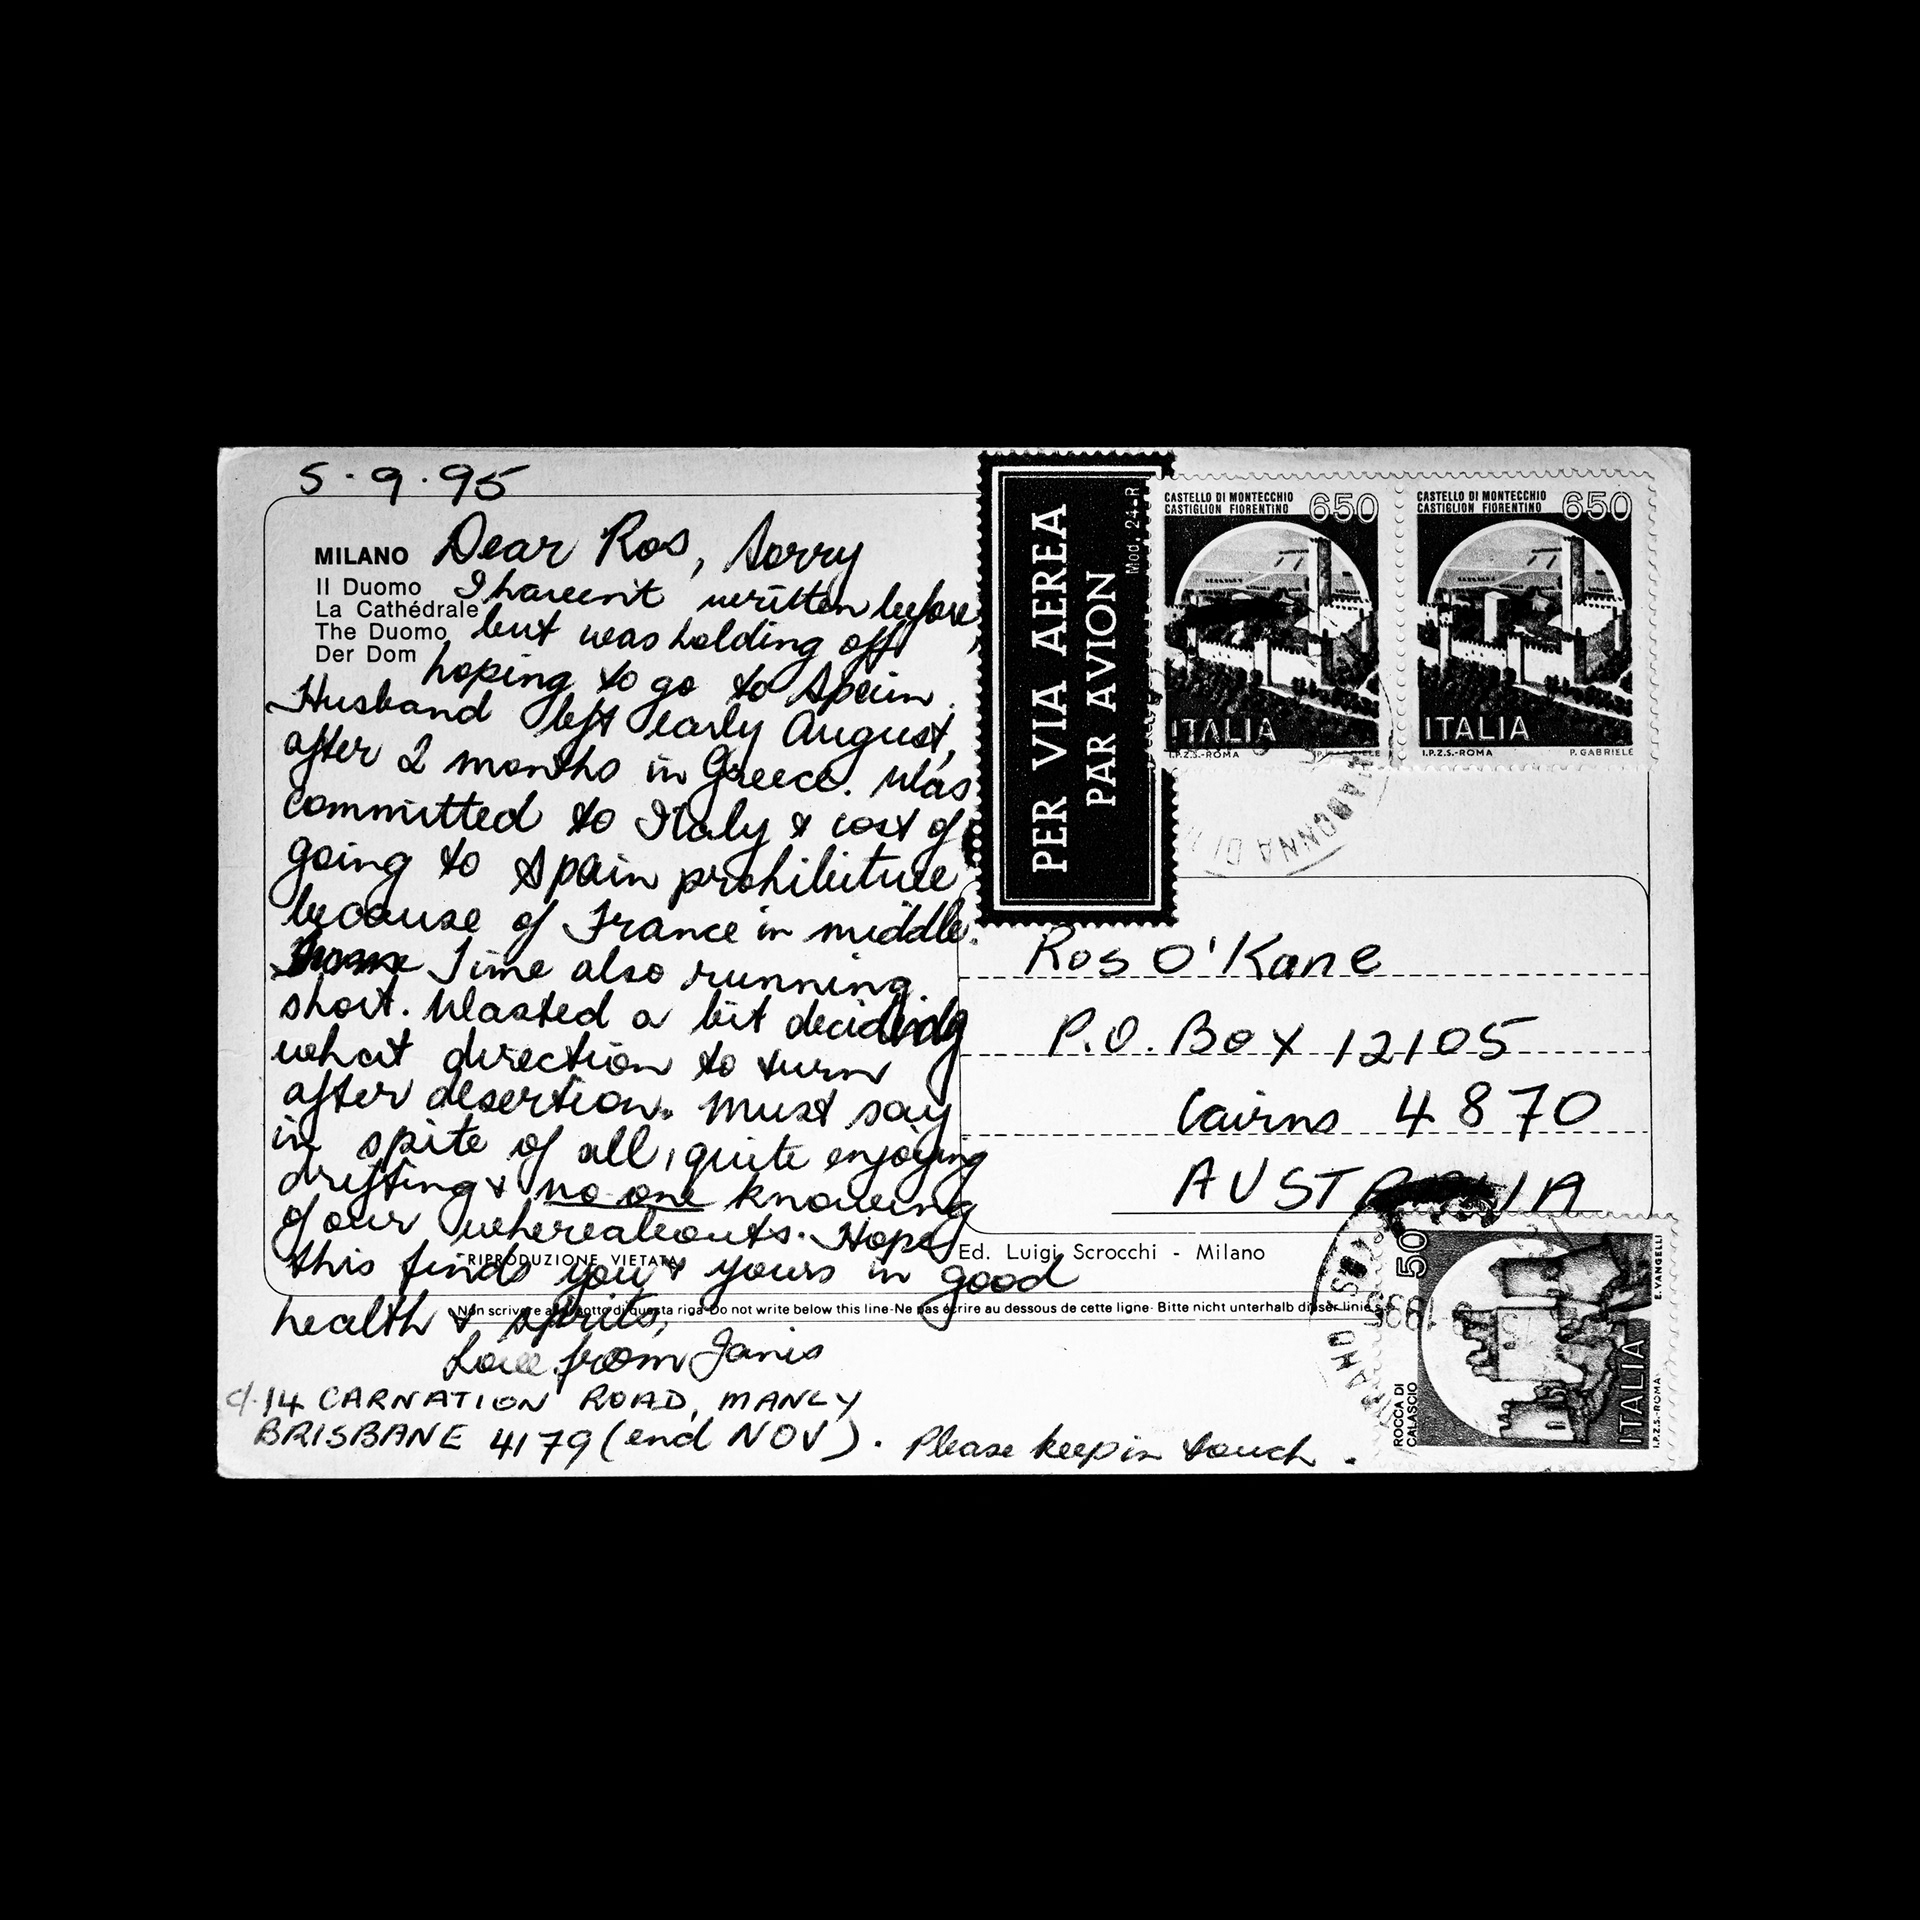 5.9.95
MILANO
Il Duomo
La Cathédrale
The Duomo
Der Dom
Dear Ros, Sorry
I haven't written before,
but was holding off
hoping to go to Spain.
Husband left early August,
after 2 months in Greece. Was
committed to Italy & cost of
going to Spain prohibitive
because of France in middle.
Time also running
short. Wasted a bit deciding
what direction to turn
after desertion. Must say
in spite of all, quite enjoying
drifting & no one knowing
of our whereabouts. Hope
this finds you & yours in good
health & spirits,
Love from Janis
c/. 14 CARNATION ROAD, MANLY
BRISBANE 4179 (end NOV). Please keep in touch.
RIPRODUZIONE VIETATA
Ed. Luigi Scrocchi - Milano
Non scrivere al di sotto di questa riga-Do not write below this line-Ne pas écrire au dessous de cette ligne- Bitte nicht unterhalb dieser linie
PER VIA AEREA
PAR AVION
Mod. 24-R
CASTELLO DI MONTECCHIO
CASTIGLION FIORENTINO
650
ITALIA
I.P.Z.S.-ROMA P. GABRIELE
CASTELLO DI MONTECCHIO
CASTIGLION FIORENTINO
650
ITALIA
I.P.Z.S.-ROMA P. GABRIELE
Ros O'Kane
P.O. Box 12105
Cairns 4870
AUSTRALIA
50
ROCCA DI
CALASCIO
ITALIA
I.P.Z.S.-ROMA E. VANGELLI